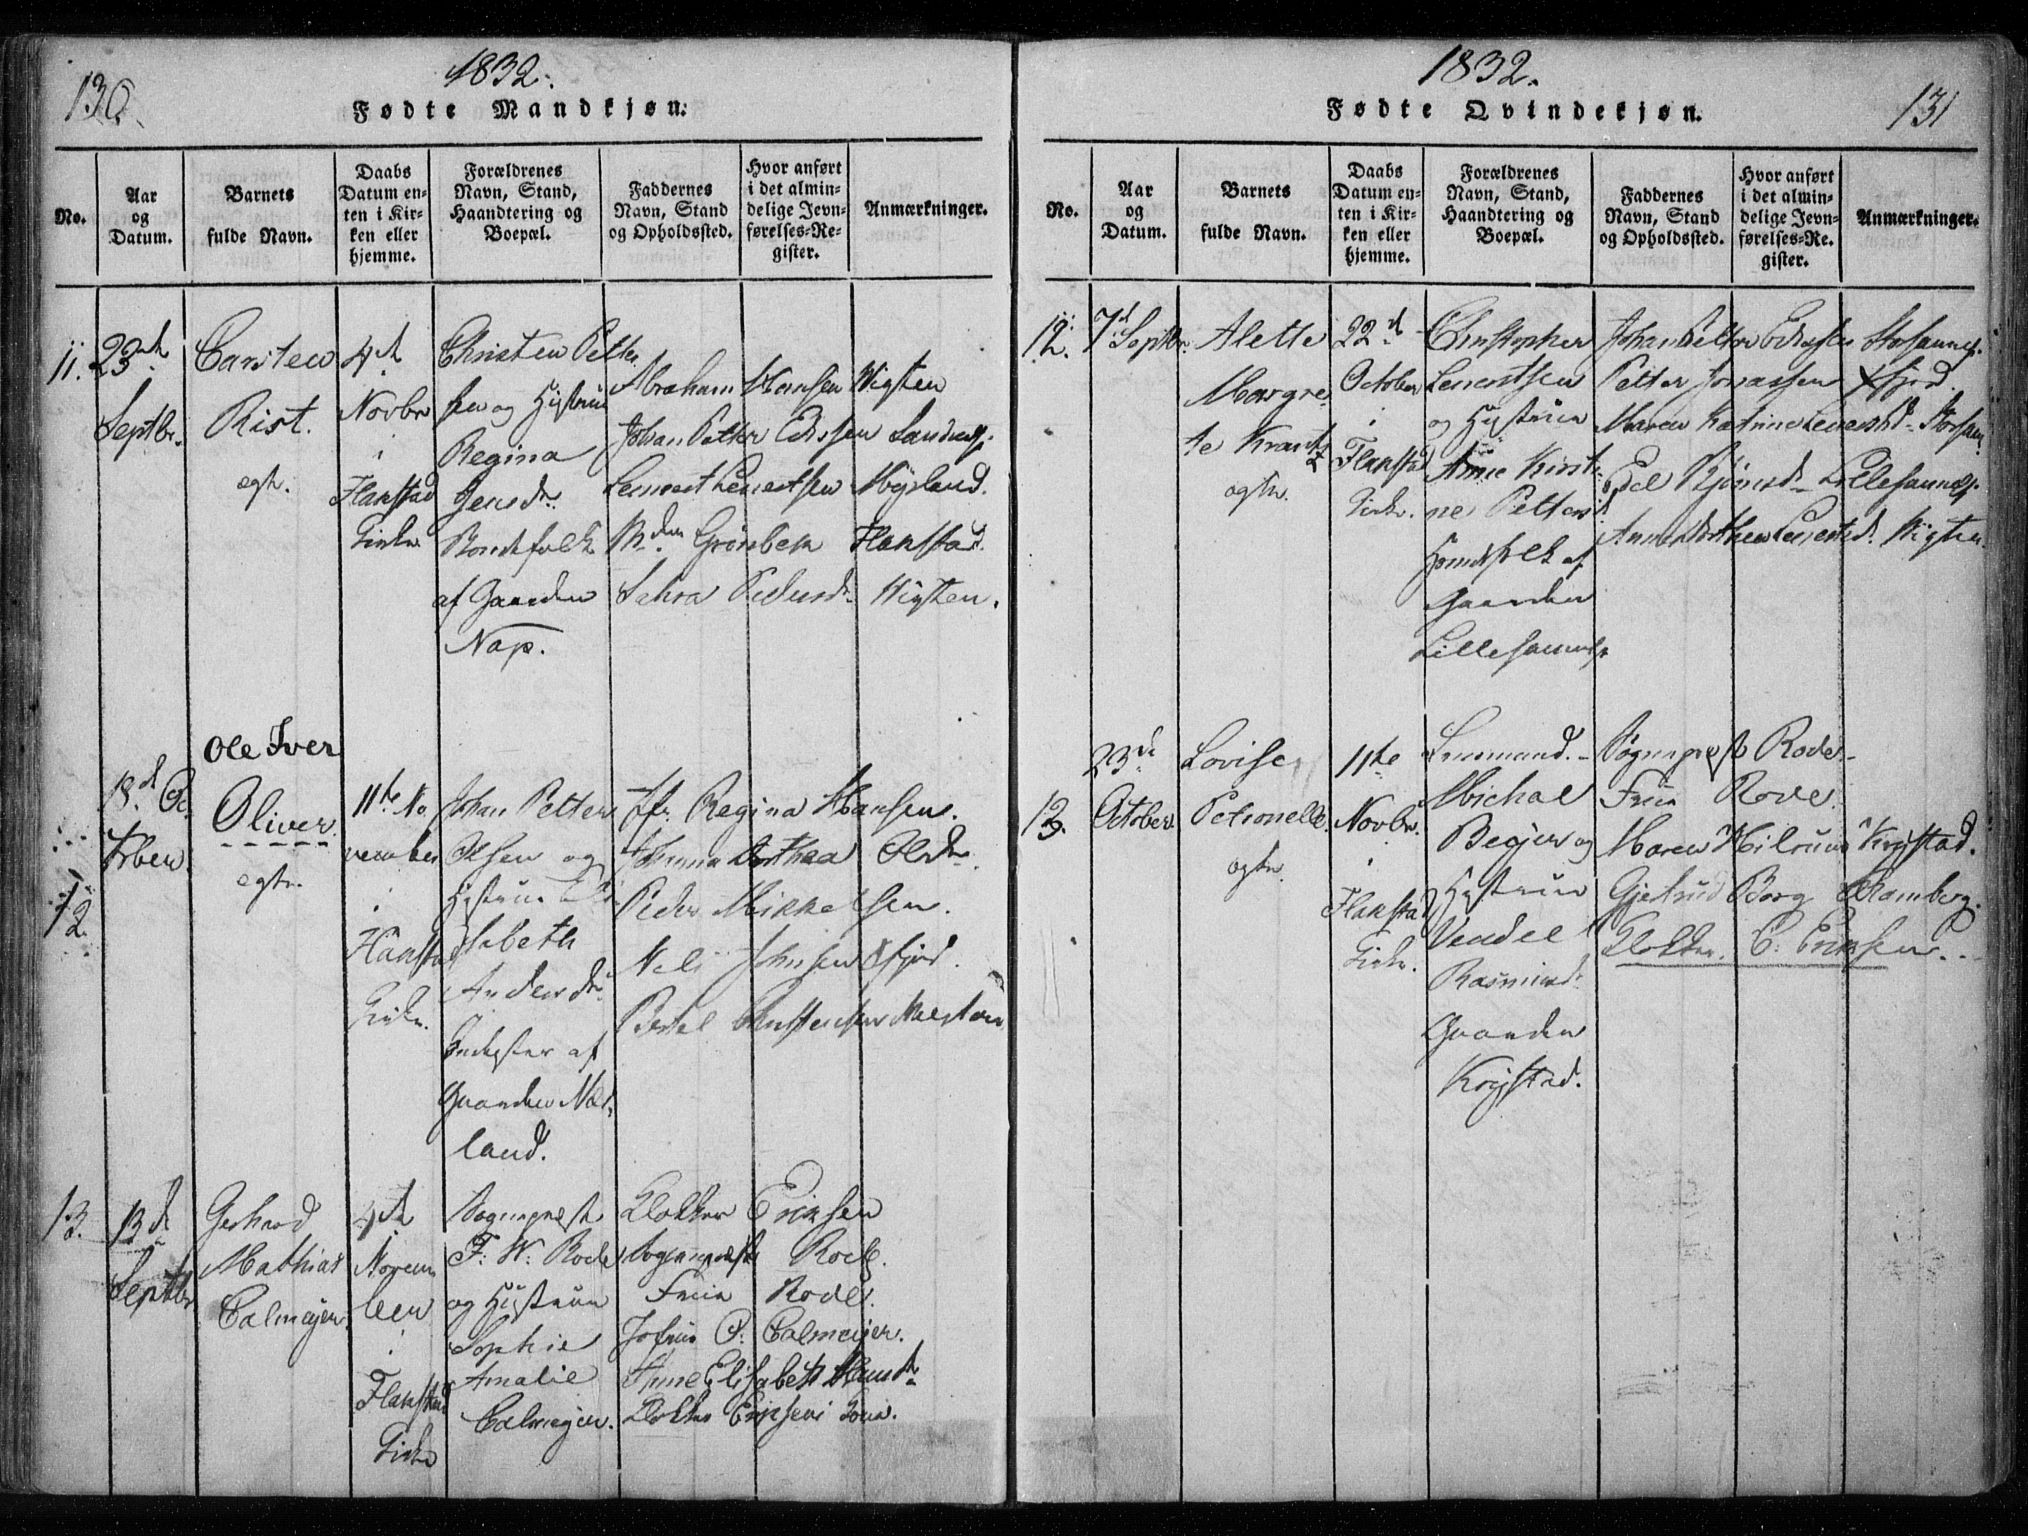 130.
1832.
Fødte Mandkjøn.
No.
Aar
og
Datum.
Barnets
fulde Navn.
Daabs
Datum en-
ten i Kir-
ken eller
hjemme.
Forældrenes
Navn, Stand,
Haandtering og
Boepæl.
Faddernes
Navn, Stand
og Opholdssted.
Hvor anført
i det almin-
delige Jevn-
førelses-Re-
gister.
Anmærkninger.
11.
23de
Septbr.
Carsten
Rist.
ægte.
4de
Novbr
i
Flakstad
Kirke
Christen Petter
sen og Hustrue
Regina
Jensdr.
Bondefolk
af Gaarden
Nap.
Abraham Hansen Vigten
Johan Petter
Lennert Lennertsen Myrland.
Grønbek Flakstad.
Vigten.
12.
18de Oc
tober.
Ole Iver
Oliver
ægte.
11te No
vember
i
Flakstad
Kirke.
Johan Petter
Olsen og
Hustrue Eli
sabeth
Andersdr.
af
Gaarden Næs
land.
Jfr. Regina Hansen.
Johanna Dorthea
Peder Mikkelsen.
Nels Johnsen
13.
13de
Septbr
Gerhard
Mathias
Calmeijer.
4de
Novem
ber
i
Flakstad
Kirke
Sognepræst
F: W: Rode
og Hustrue
Sophie
Amalie
Calmeijer.
Klokker Eriksen
Sognepræst Rode.
Frue Rode.
Jofrue C: Calmeijer.
Anne Elisabeth Hansdr.
Klokker Eriksens Kone.
1832.
131
Fødte Qvindekjøn.
No.
Aar
og
Datum.
Barnets
fulde Navn.
Daabs
Datum en-
ten i Kir-
ken eller
hjemme.
Forældrenes
Navn, Stand,
Haandtering og
Boepæl.
Faddernes
Navn, Stand
og Opholdssted.
Hvor anført
i det almin-
delige Jevn-
førelses-Re.
gister.
Anmærkninger.
12.
7de Septbr.
Alette
Margre
te Krantz
ægte.
22de
October
i
Flakstad
Kirke.
Christopher
Lennertsen
og Hustrue
Anne Kirsti
ne Pettersd.
af
Gaarden
Lillesannes
Johan Petter
Petter Jonassen
Maren Katrine Lennertsd.
Edel Lillesannes.
Anne Dorthea Lennertsd. Vigten
13.
23de
October
Lovise
Petronelle.
ægte.
11te
Novbr.
i
Flakstad
Kirke.
Lensmand
Michal
Beyer og
Hustrue
Vendel
Rasmusd.
Gaarden
Krystad.
Sognepræst Rode
Frue Rode.
Maren Krystad.
Gjertrud Borg Ramberg.
Klokker. C: Eriksen.